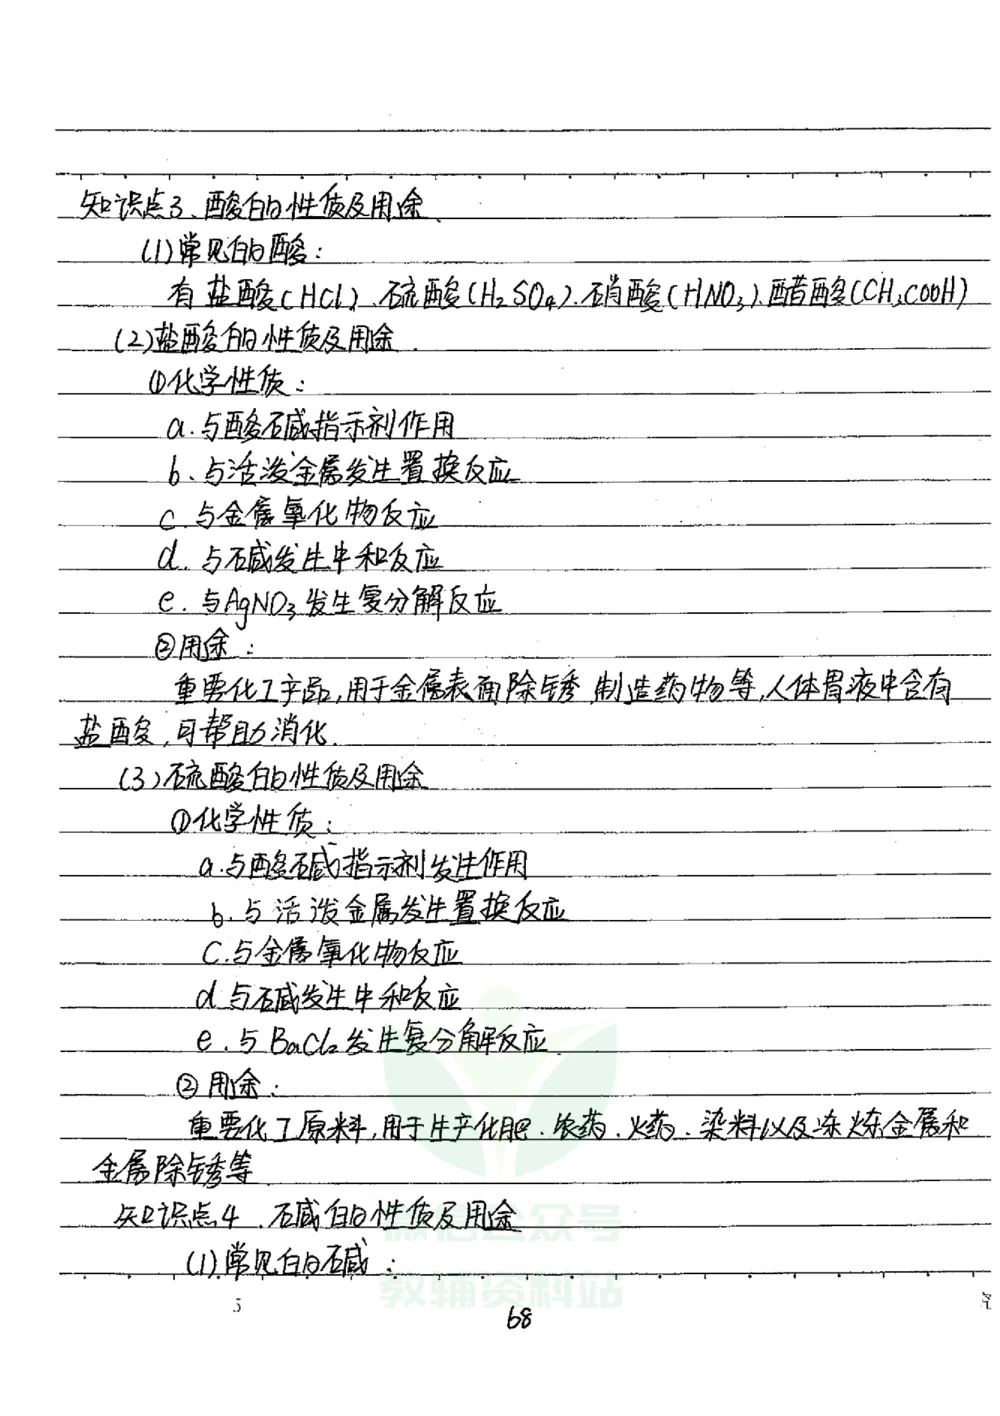 知识点3、酸的性质及用途
(1)常见的酸：
有盐酸(HCl)、硫酸(H₂SO₄)、硝酸(HNO₃)、醋酸(CH₃COOH)
(2)盐酸的性质及用途.
①化学性质：
a.与酸碱指示剂作用
b.与活泼金属发生置换反应
c.与金属氧化物反应
d.与碱发生中和反应
e.与AgNO₃发生复分解反应
②用途：
重要化工产品,用于金属表面除锈,制造药物等,人体胃液中含有
盐酸,可帮助消化.
(3)硫酸的性质及用途
①化学性质：
a.与酸碱指示剂发生作用
b.与活泼金属发生置换反应
C.与金属氧化物反应
d.与碱发生中和反应
e.与BaCl₂发生复分解反应.
②用途：
重要化工原料,用于生产化肥、农药、火药、染料以及冻炼金属和
金属除锈等
知识点4、碱的性质及用途
(1)常见的碱：
微信公众号
教辅资料站
5
68